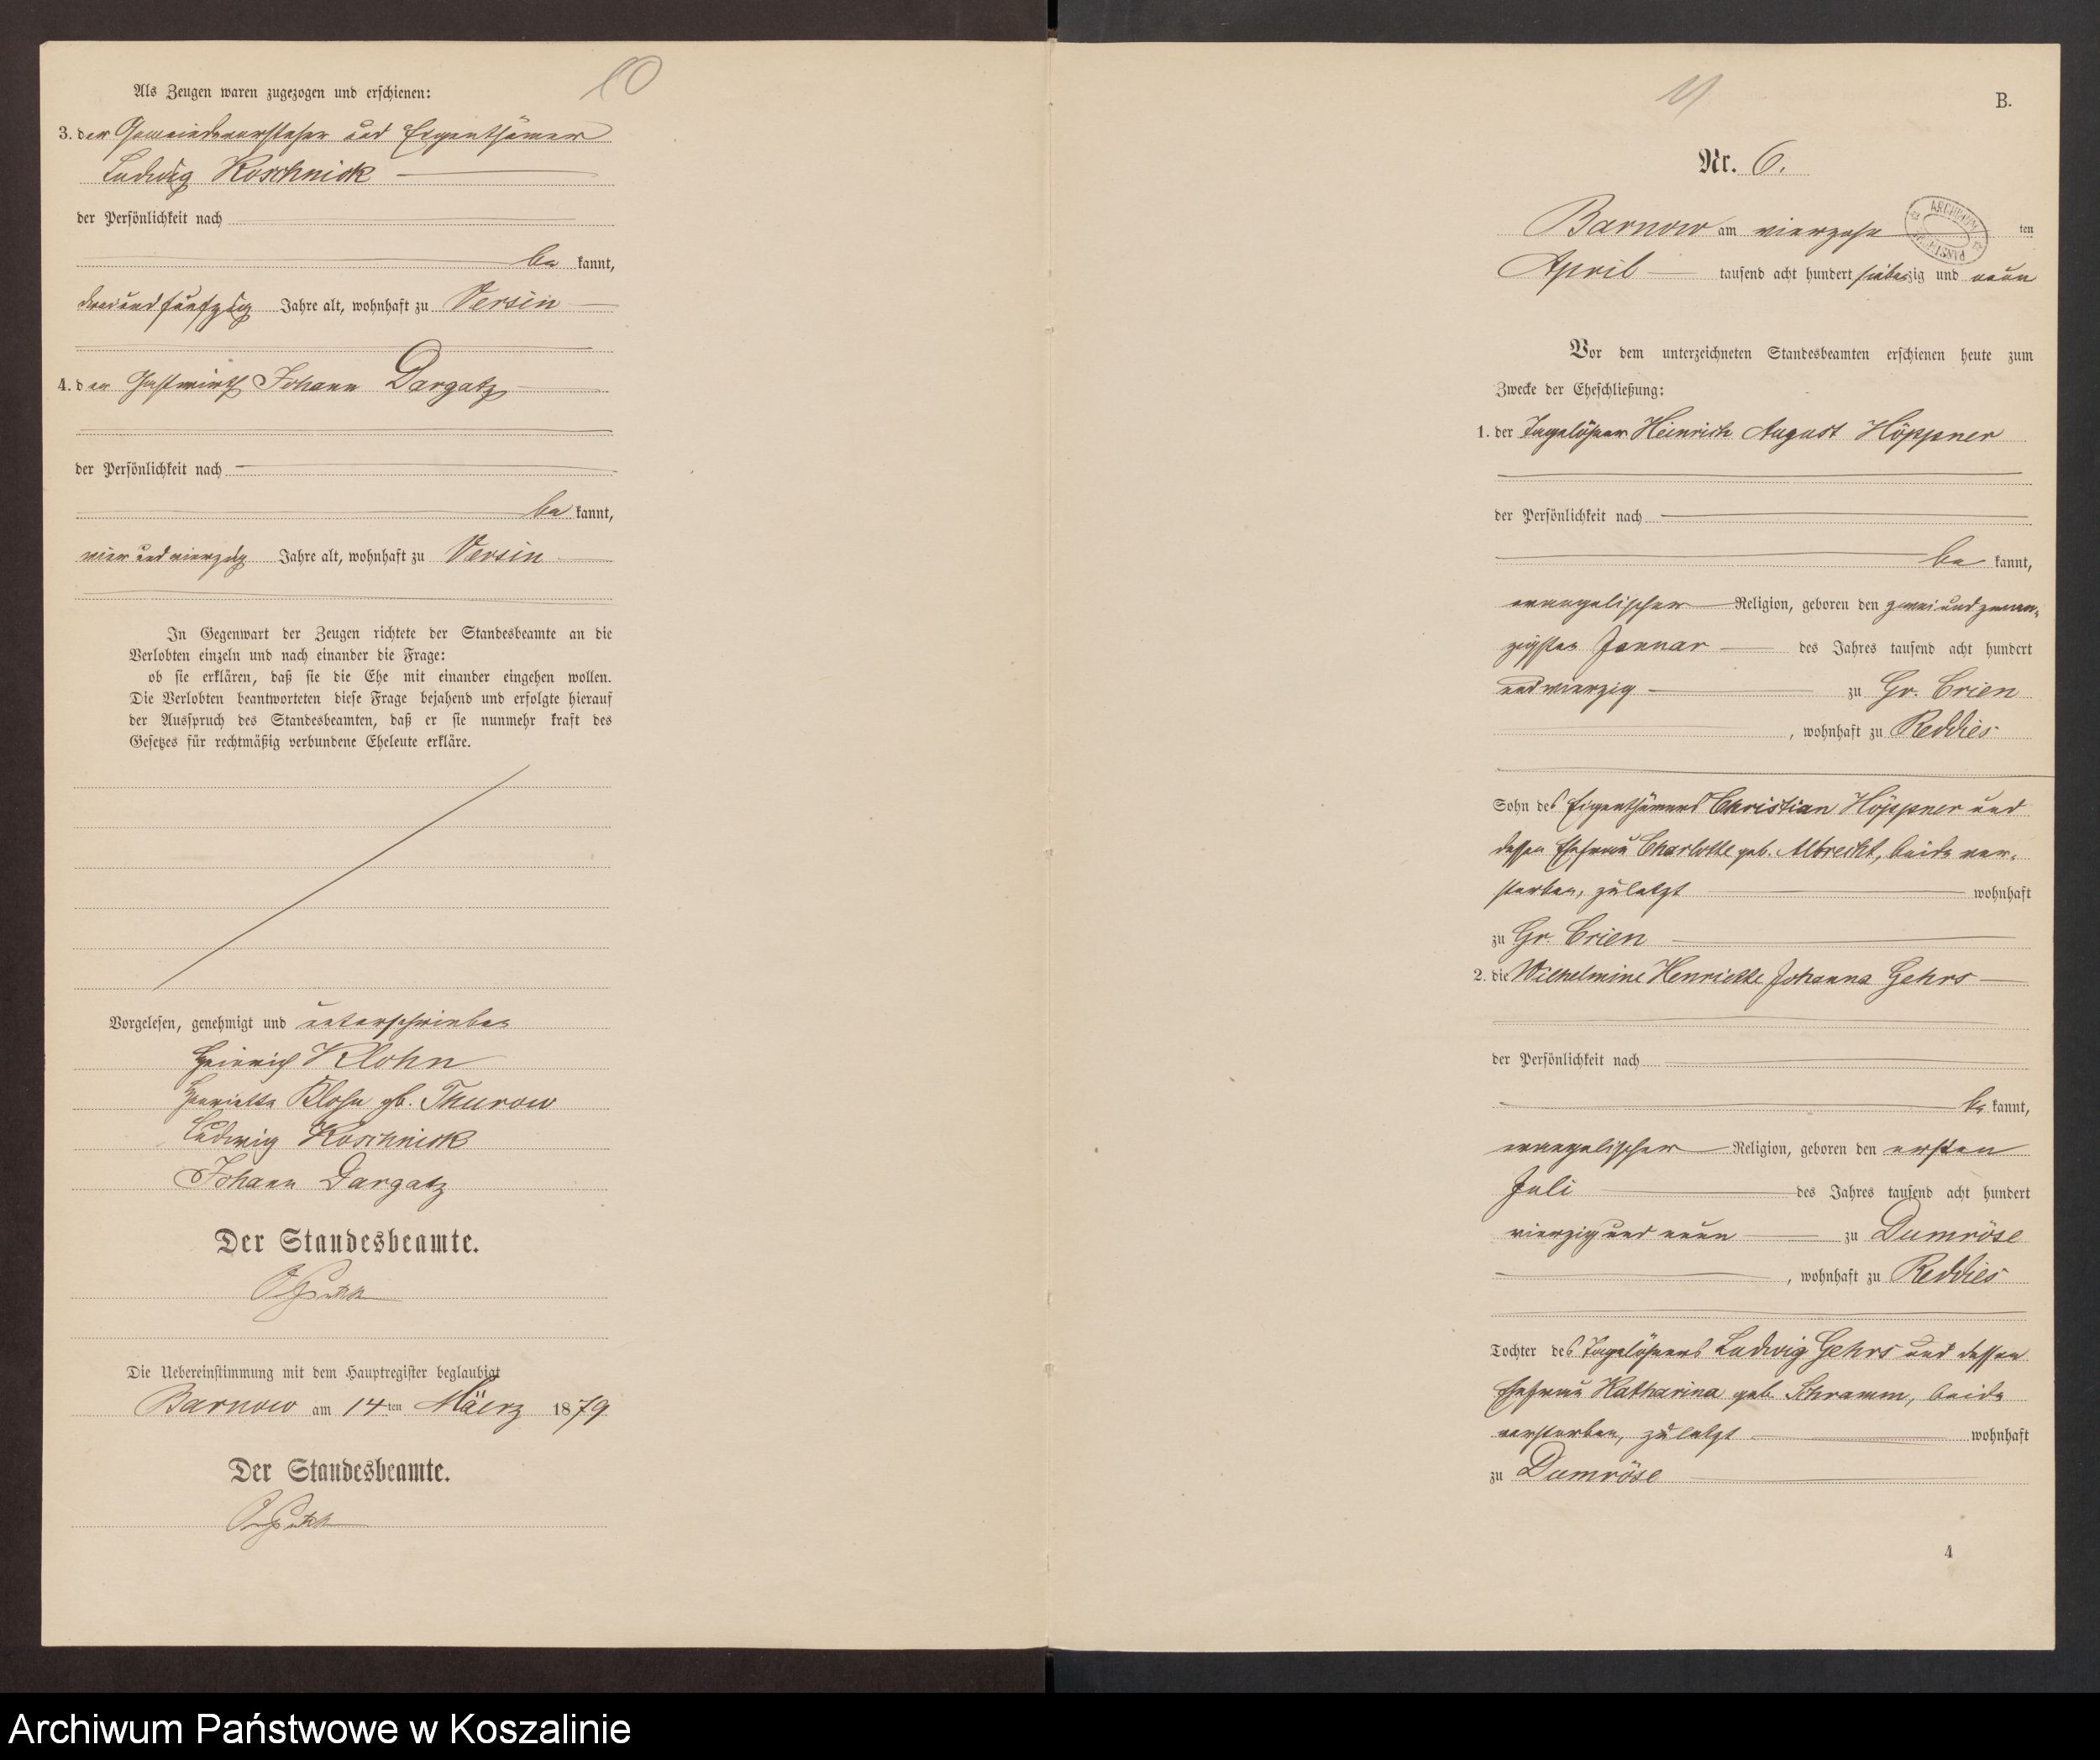 10
Als Zeugen waren zugezogen und erschienen:
3. der Gemeindevorsteher und Eigenthümer
Ludwig Koschnick
der Persönlichkeit nach
be kannt,
dreiundfünfzig Jahre alt, wohnhaft zu Versin
4. der Gastwirth Johann Dargatz
der Persönlichkeit nach
be kannt,
vier und vierzig Jahre alt, wohnhaft zu Versin
In Gegenwart der Zeugen richtete der Standesbeamte an die
Verlobten einzeln und nach einander die Frage:
ob sie erklären, daß sie die Ehe mit einander eingehen wollen.
Die Verlobten beantworteten diese Frage bejahend und erfolgte hierauf
der Ausspruch des Standesbeamten, daß er sie nunmehr kraft des
Gesetzes für rechtmäßig verbundene Eheleute erkläre.
Vorgelesen, genehmigt und unterschrieben
Heinrich Klohn
Henriette Klohn gb. Thurow
Ludwig Koschnick
Johann Dargatz
Der Standesbeamte.
Die Uebereinstimmung mit dem Hauptregister beglaubigt
Barnow am 14 ten Märrz 1879
Der Standesbeamte.
11
B.
Nr. 6.
Barnow am vierzehn ten
April tausend acht hundert siebenzig und neun
Vor dem unterzeichneten Standesbeamten erschienen heute zum
Zwecke der Eheschließung:
1. der Tagelöhner Heinrich August Höppner
der Persönlichkeit nach
be kannt,
evangelischer Religion, geboren den zweiundzwan-
zigsten Januar des Jahres tausend acht hundert
und vierzig zu Gr. Crien
, wohnhaft zu Reddies
Sohn des Eigenthümers Christian Höppner und
dessen Ehefrau Charlotte geb. Albrecht, beide ver-
storben, zuletzt wohnhaft
zu Gr. Crien
2. die Wilhelmine Henriette Johanna Gehrs
der Persönlichkeit nach
be kannt,
evangelischer Religion, geboren den ersten
Juli des Jahres tausend acht hundert
vierzig und neun zu Dumröse
, wohnhaft zu Reddies
Tochter des Tagelöhners Ludwig Gehrs und dessen
Ehefrau Katharina geb. Schramm, beide
verstorben, zuletzt wohnhaft
zu Dumröse
4
Archiwum Państwowe w Koszalinie